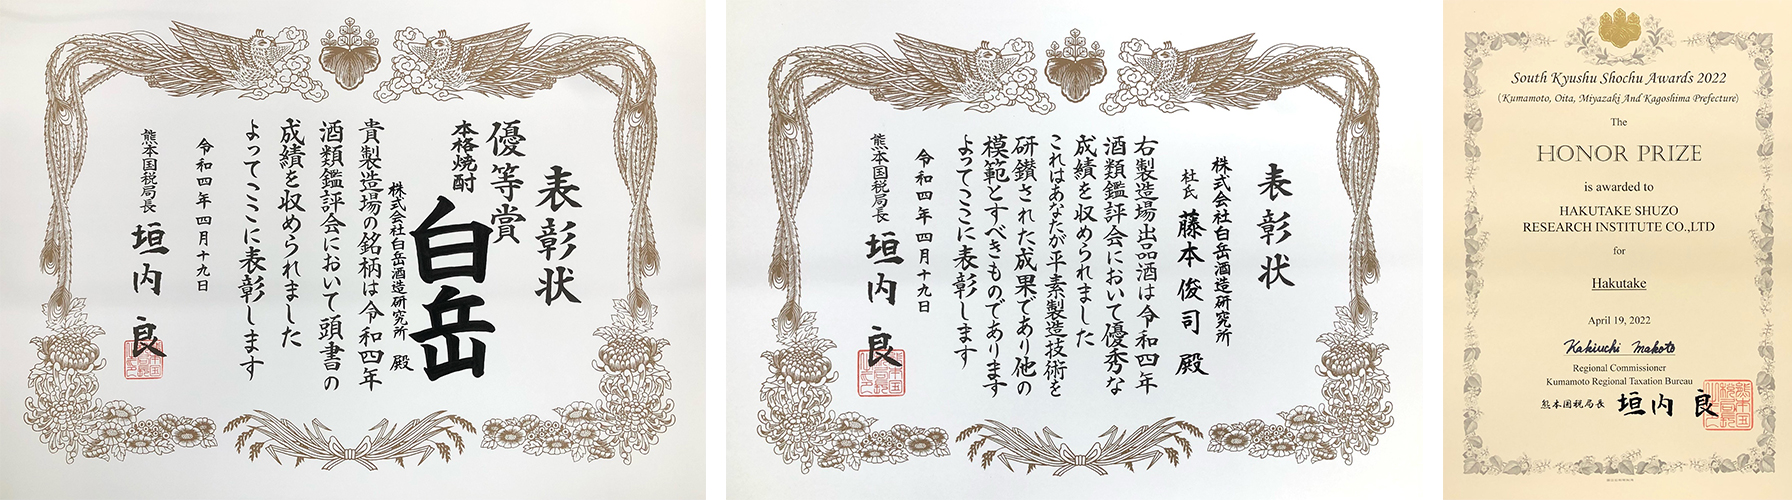 表彰状
優等賞
本格焼酎
白岳
株式会社白岳酒造研究所 殿
貴製造場の銘柄は令和四年
酒類鑑評会において頭書の
成績を収められました
よってここに表彰します
令和四年四月十九日
熊本国税局長 垣内 良
表彰状
株式会社白岳酒造研究所
杜氏 藤本俊司 殿
右製造場出品酒は令和四年
酒類鑑評会において優秀な
成績を収められました
これはあなたが平素製造技術を
研鑚された成果であり他の
模範とすべきものであります
よってここに表彰します
令和四年四月十九日
熊本国税局長 垣内 良
South Kyushu Shochu Awards 2022
(Kumamoto, Oita, Miyazaki And Kagoshima Prefecture)
The
HONOR PRIZE
is awarded to
HAKUTAKE SHUZO
RESEARCH INSTITUTE CO.,LTD
for
Hakutake
April 19, 2022
Kakiuchi Makoto
Regional Commissioner
Kumamoto Regional Taxation Bureau
熊本国税局長 垣内 良